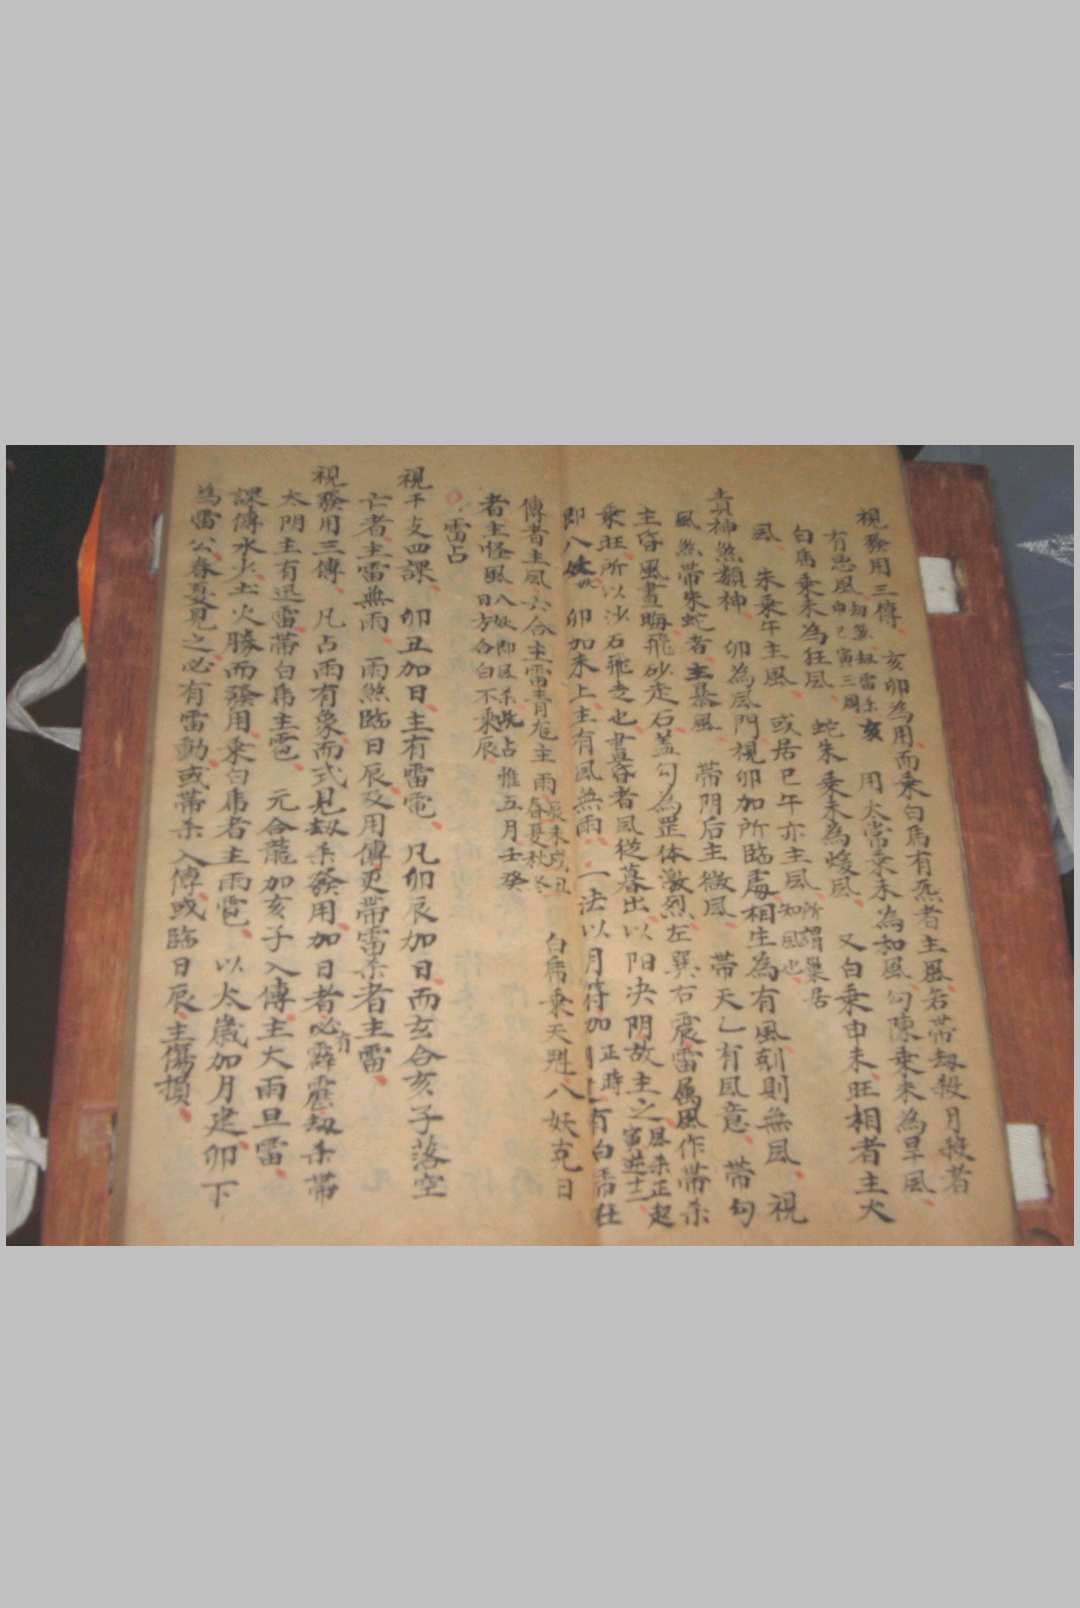 視發用三傳、亥卯為用而乘白虎有炁者主風若帶劫殺月殺者
有忠風 用太常乘未為和風、勾陳乘未為旱風、
白虎乘未為狂風 蛇朱乘未為煖風、又白乘申未旺相者主大
風、朱乘午主風、或居巳午亦主風 所謂巢居知風也、
視神煞類神、卯為風門視卯加所臨處相生為有風剋則無風、視
風煞帶朱蛇者主暴風、帶陰后主微風、帶天乙有風意、帶勾
主昏風晝晦飛砂走石蓋勾為罡体激烈左巽右震雷属風作帶煞
乘旺、所以沙石飛走也晝昏者風從暮出、以陽決陰故主之
即八妖 卯加未上、主有風無雨、一法以月將加正時
傳者主風六合主雷青龙主雨 辰未戌丑春夏秋冬 白虎乘天魁八妖克日
者主怪風 惟五月壬癸日方合白不乘辰
雷占
視干支四課、卯丑加日、主有雷電、凡卯辰加日、而玄合亥子落空
亡者、主雷無雨、雨煞臨日辰及用傳更帶雷煞者主雷、
視發用三傳、凡占雨有象而式見劫煞發用加日者必有霹靂劫煞帶
太陰主有迅雷、帶白虎主雹、元合龍加亥子入傳、主大雨且雷、
課傳水火土火勝而發用、乘白虎者主雨雹、以太歲加月建、卯下
為雷公春夏見之必有雷動、或帶煞入傳、或臨日辰、主傷損、